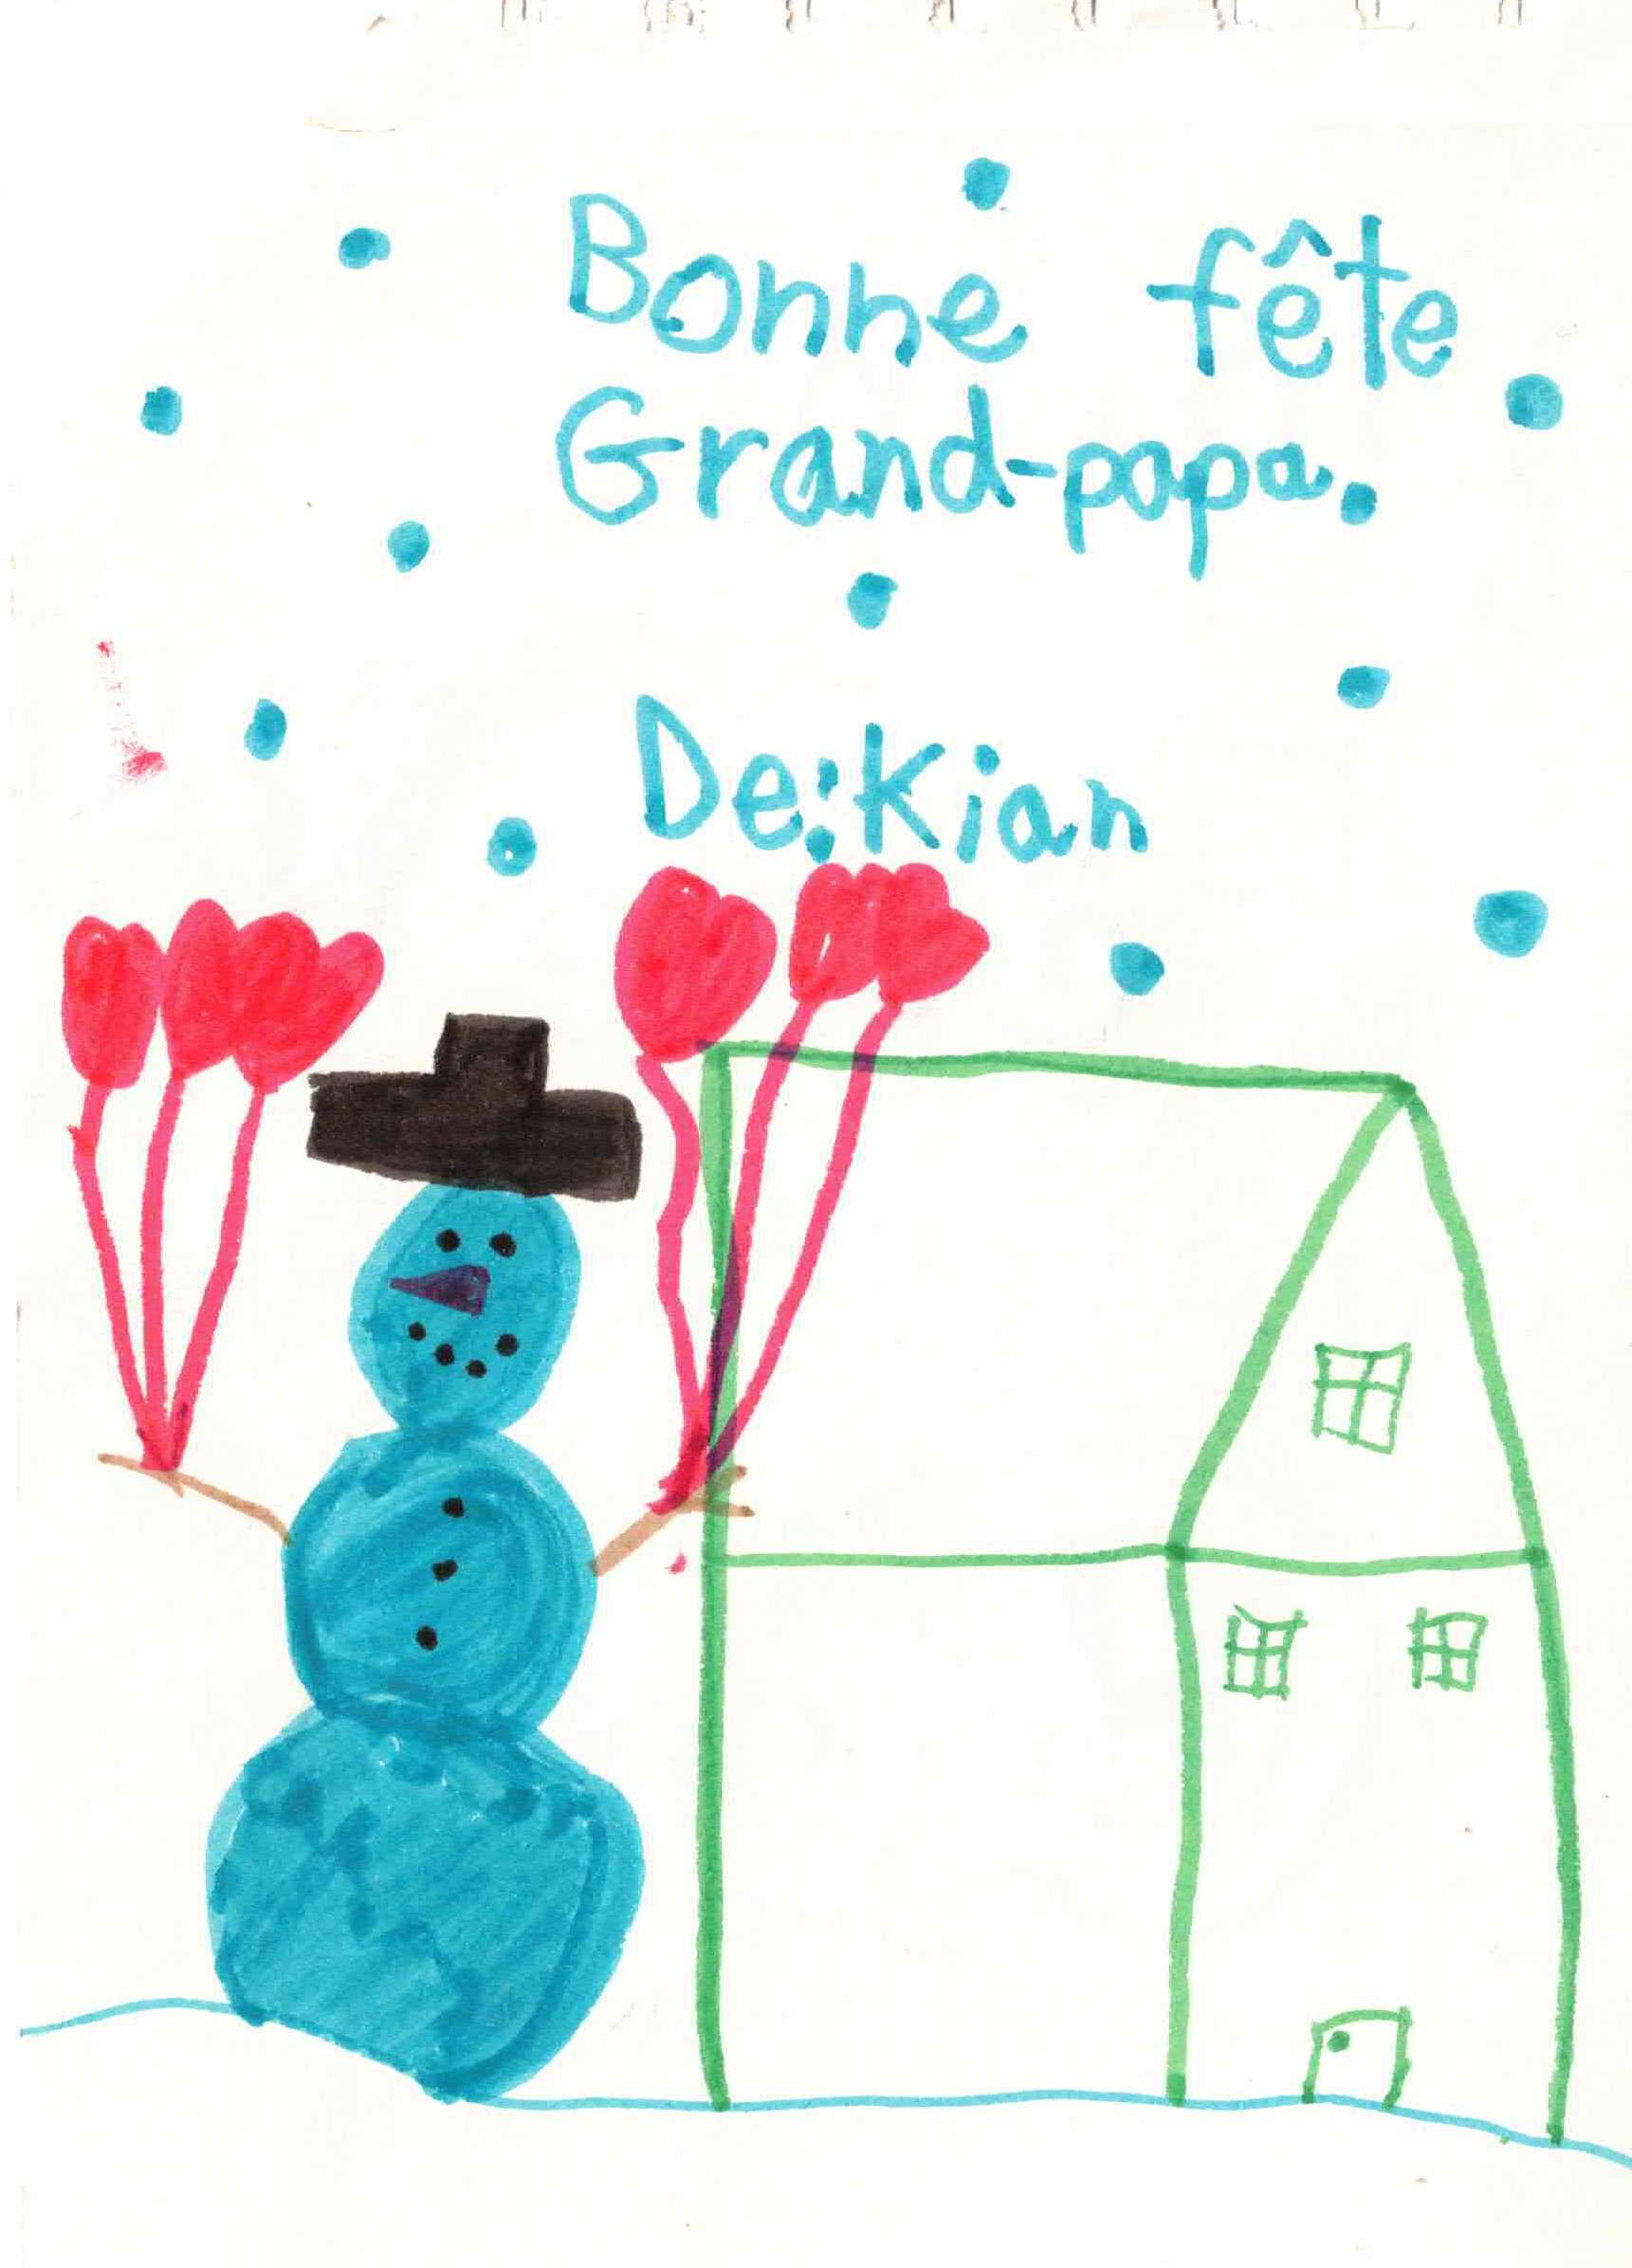 Bonne fête
Grand-papa.
De:Kian